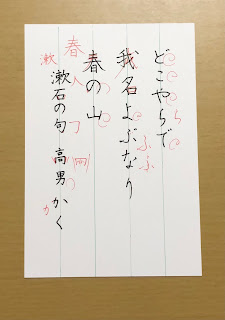 どこやらで
我名よぶなり
春の山
漱石の句 高男かく